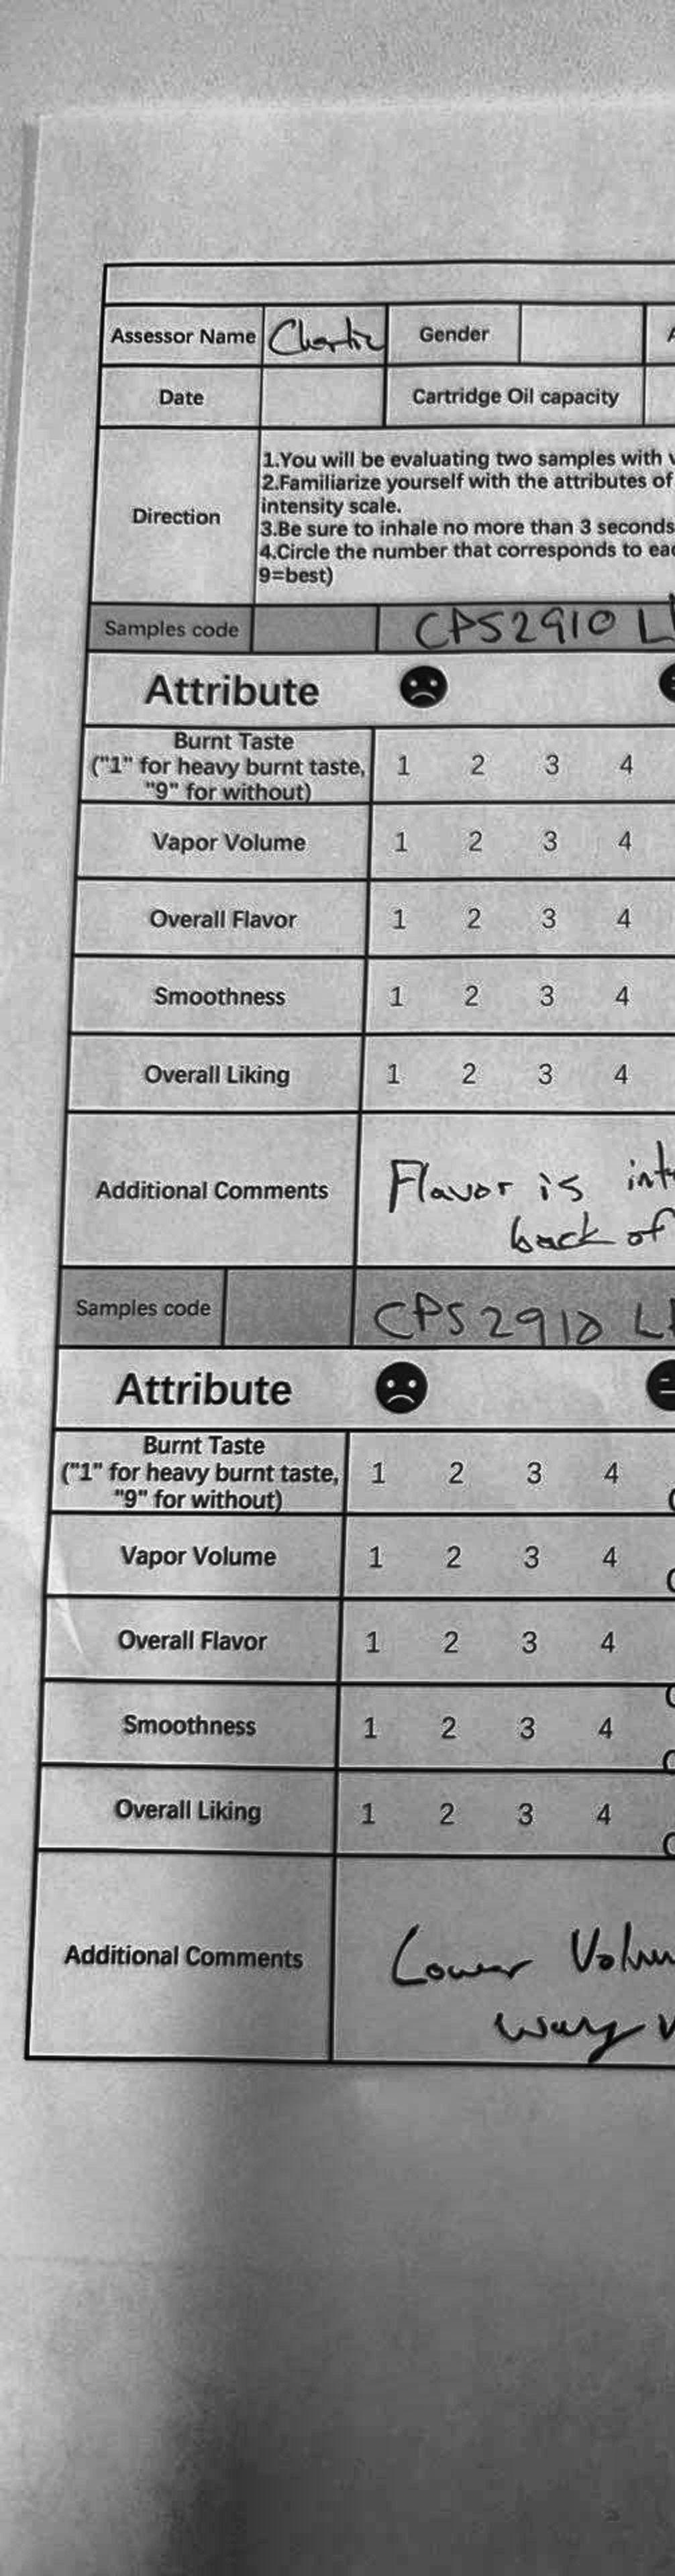 Assessor Name Charlie Gender
Date Cartridge Oil capacity
Direction
1.You will be evaluating two samples with
2.Familiarize yourself with the attributes of
intensity scale.
3.Be sure to inhale no more than 3 seconds
4.Circle the number that corresponds to
9=best)
Samples code CPS2910
Attribute
Burnt Taste
("1" for heavy burnt taste, 1 2 3 4
"9" for without)
Vapor Volume 1 2 3 4
Overall Flavor 1 2 3 4
Smoothness 1 2 3 4
Overall Liking 1 2 3 4
Additional Comments
Flavor is
back of
Samples code CPS2910
Attribute
Burnt Taste
("1" for heavy burnt taste, 1 2 3 4
"9" for without)
Vapor Volume 1 2 3 4
Overall Flavor 1 2 3 4
Smoothness 1 2 3 4
Overall Liking 1 2 3 4
Additional Comments
Lower